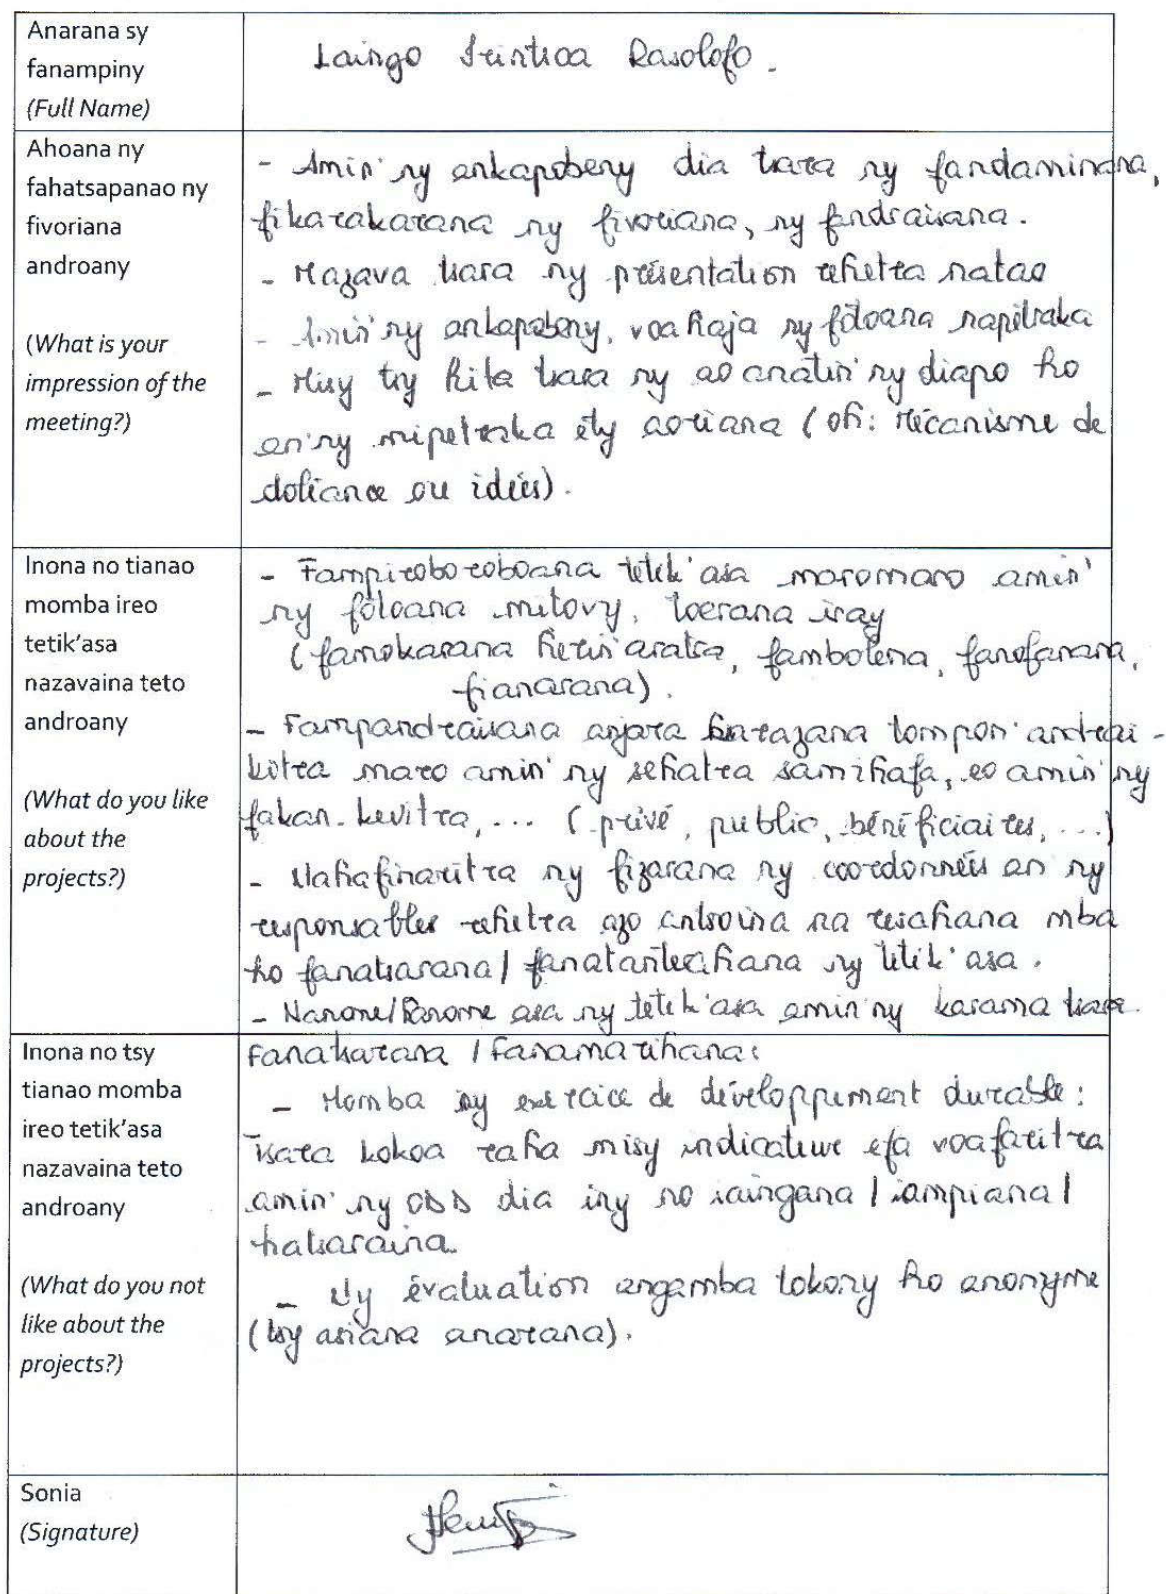 Anarana sy
fanampiny
(Full Name)
Laingo Rasolofo.
Ahoana ny
fahatsapanao ny
fivoriana
androany
(What is your
impression of the
meeting?)
- Amin'ny ankapobeny dia tsara ny fandaminana,
fikarakarana ny fivoriana, ny fandraisana.
- Mazava tsara ny présentation rehetra natao
- Amin'ny ankapobeny, voahaja ny fotoana napetraka
- Misy tsy hita tsara ny ao anatin'ny diapo ho
an'ny mipetraka ety aoriana (oh: Mécanisme de
doléance ou idées).
Inona no tianao
momba ireo
tetik'asa
nazavaina teto
androany
(What do you like
about the
projects?)
- Fampiroboroboana tetik'asa maromaro amin'
ny fotoana mitovy, toerana iray
(famokarana herin'aratra, fambolena, fanofanana,
fianarana).
- Fampandraisana anjara tompon'andrai-
kitra maro amin'ny sehatra samihafa, eo amin'ny
fakan-kevitra, ... (privé, public, bénéficiaires, ...)
- Mahafinaritra ny fizarana ny coordonnées an'ny
responsables rehetra azo antsoina na resahana mba
ho fanatsarana/ fanatanterahana ny tetik'asa.
- asa ny tetik'asa amin'ny karama tsara.
Inona no tsy
tianao momba
ireo tetik'asa
nazavaina teto
androany
(What do you not
like about the
projects?)
Fanatsarana / Fanamarihana:
- Momba ny exercice de développement durable:
Tsara kokoa raha misy indicateur efa voafaritra
amin'ny ODD dia iny no raingana / iampiana /
hatsaraina.
- Ny évaluation angamba tokony ho anonyme
(tsy asiana anarana).
Sonia
(Signature)